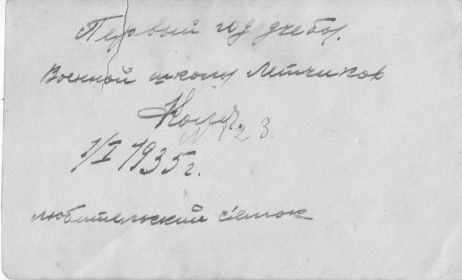 Первый год учебы.
Военной школы Летчиков
Коля.
№ 23.
1/I 1935 г.
любительский с'емок